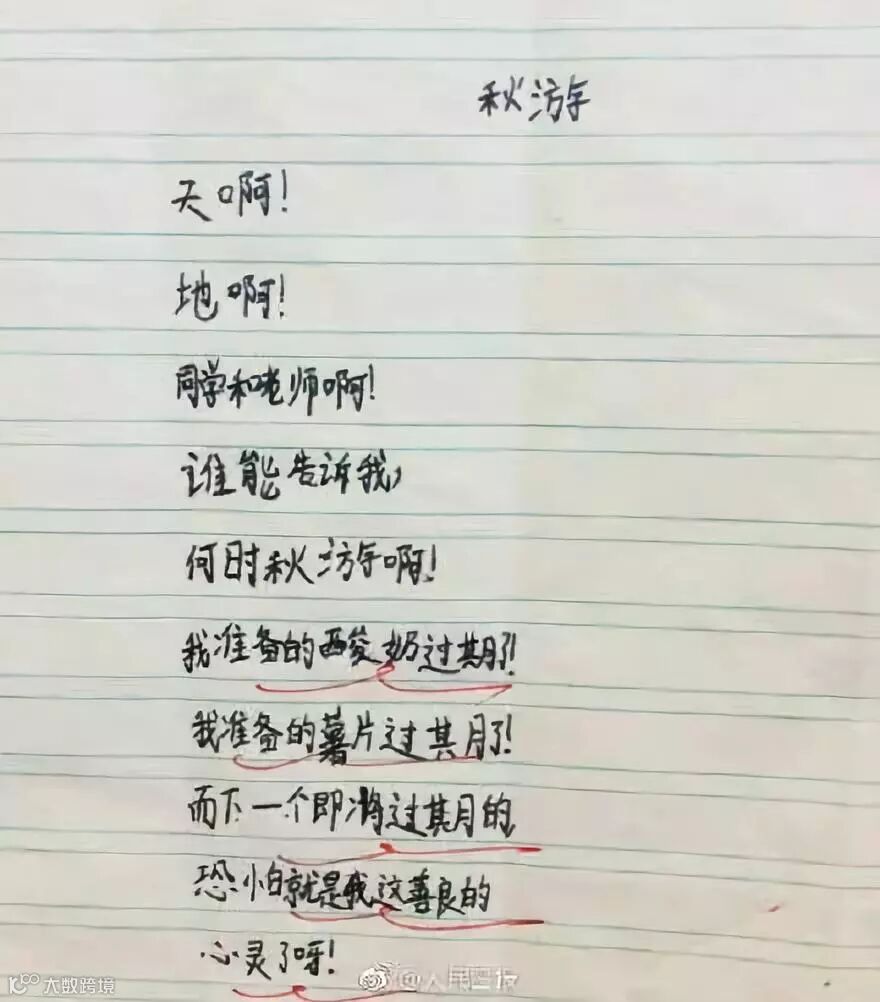 秋游
天啊!
地啊!
同学和老师啊!
谁能告诉我,
何时秋游啊!
我准备的酸奶过期了!
我准备的薯片过期了!
而下一个即将过期的,
恐怕就是我这善良的
心灵了呀!
@人民日报
大数跨境